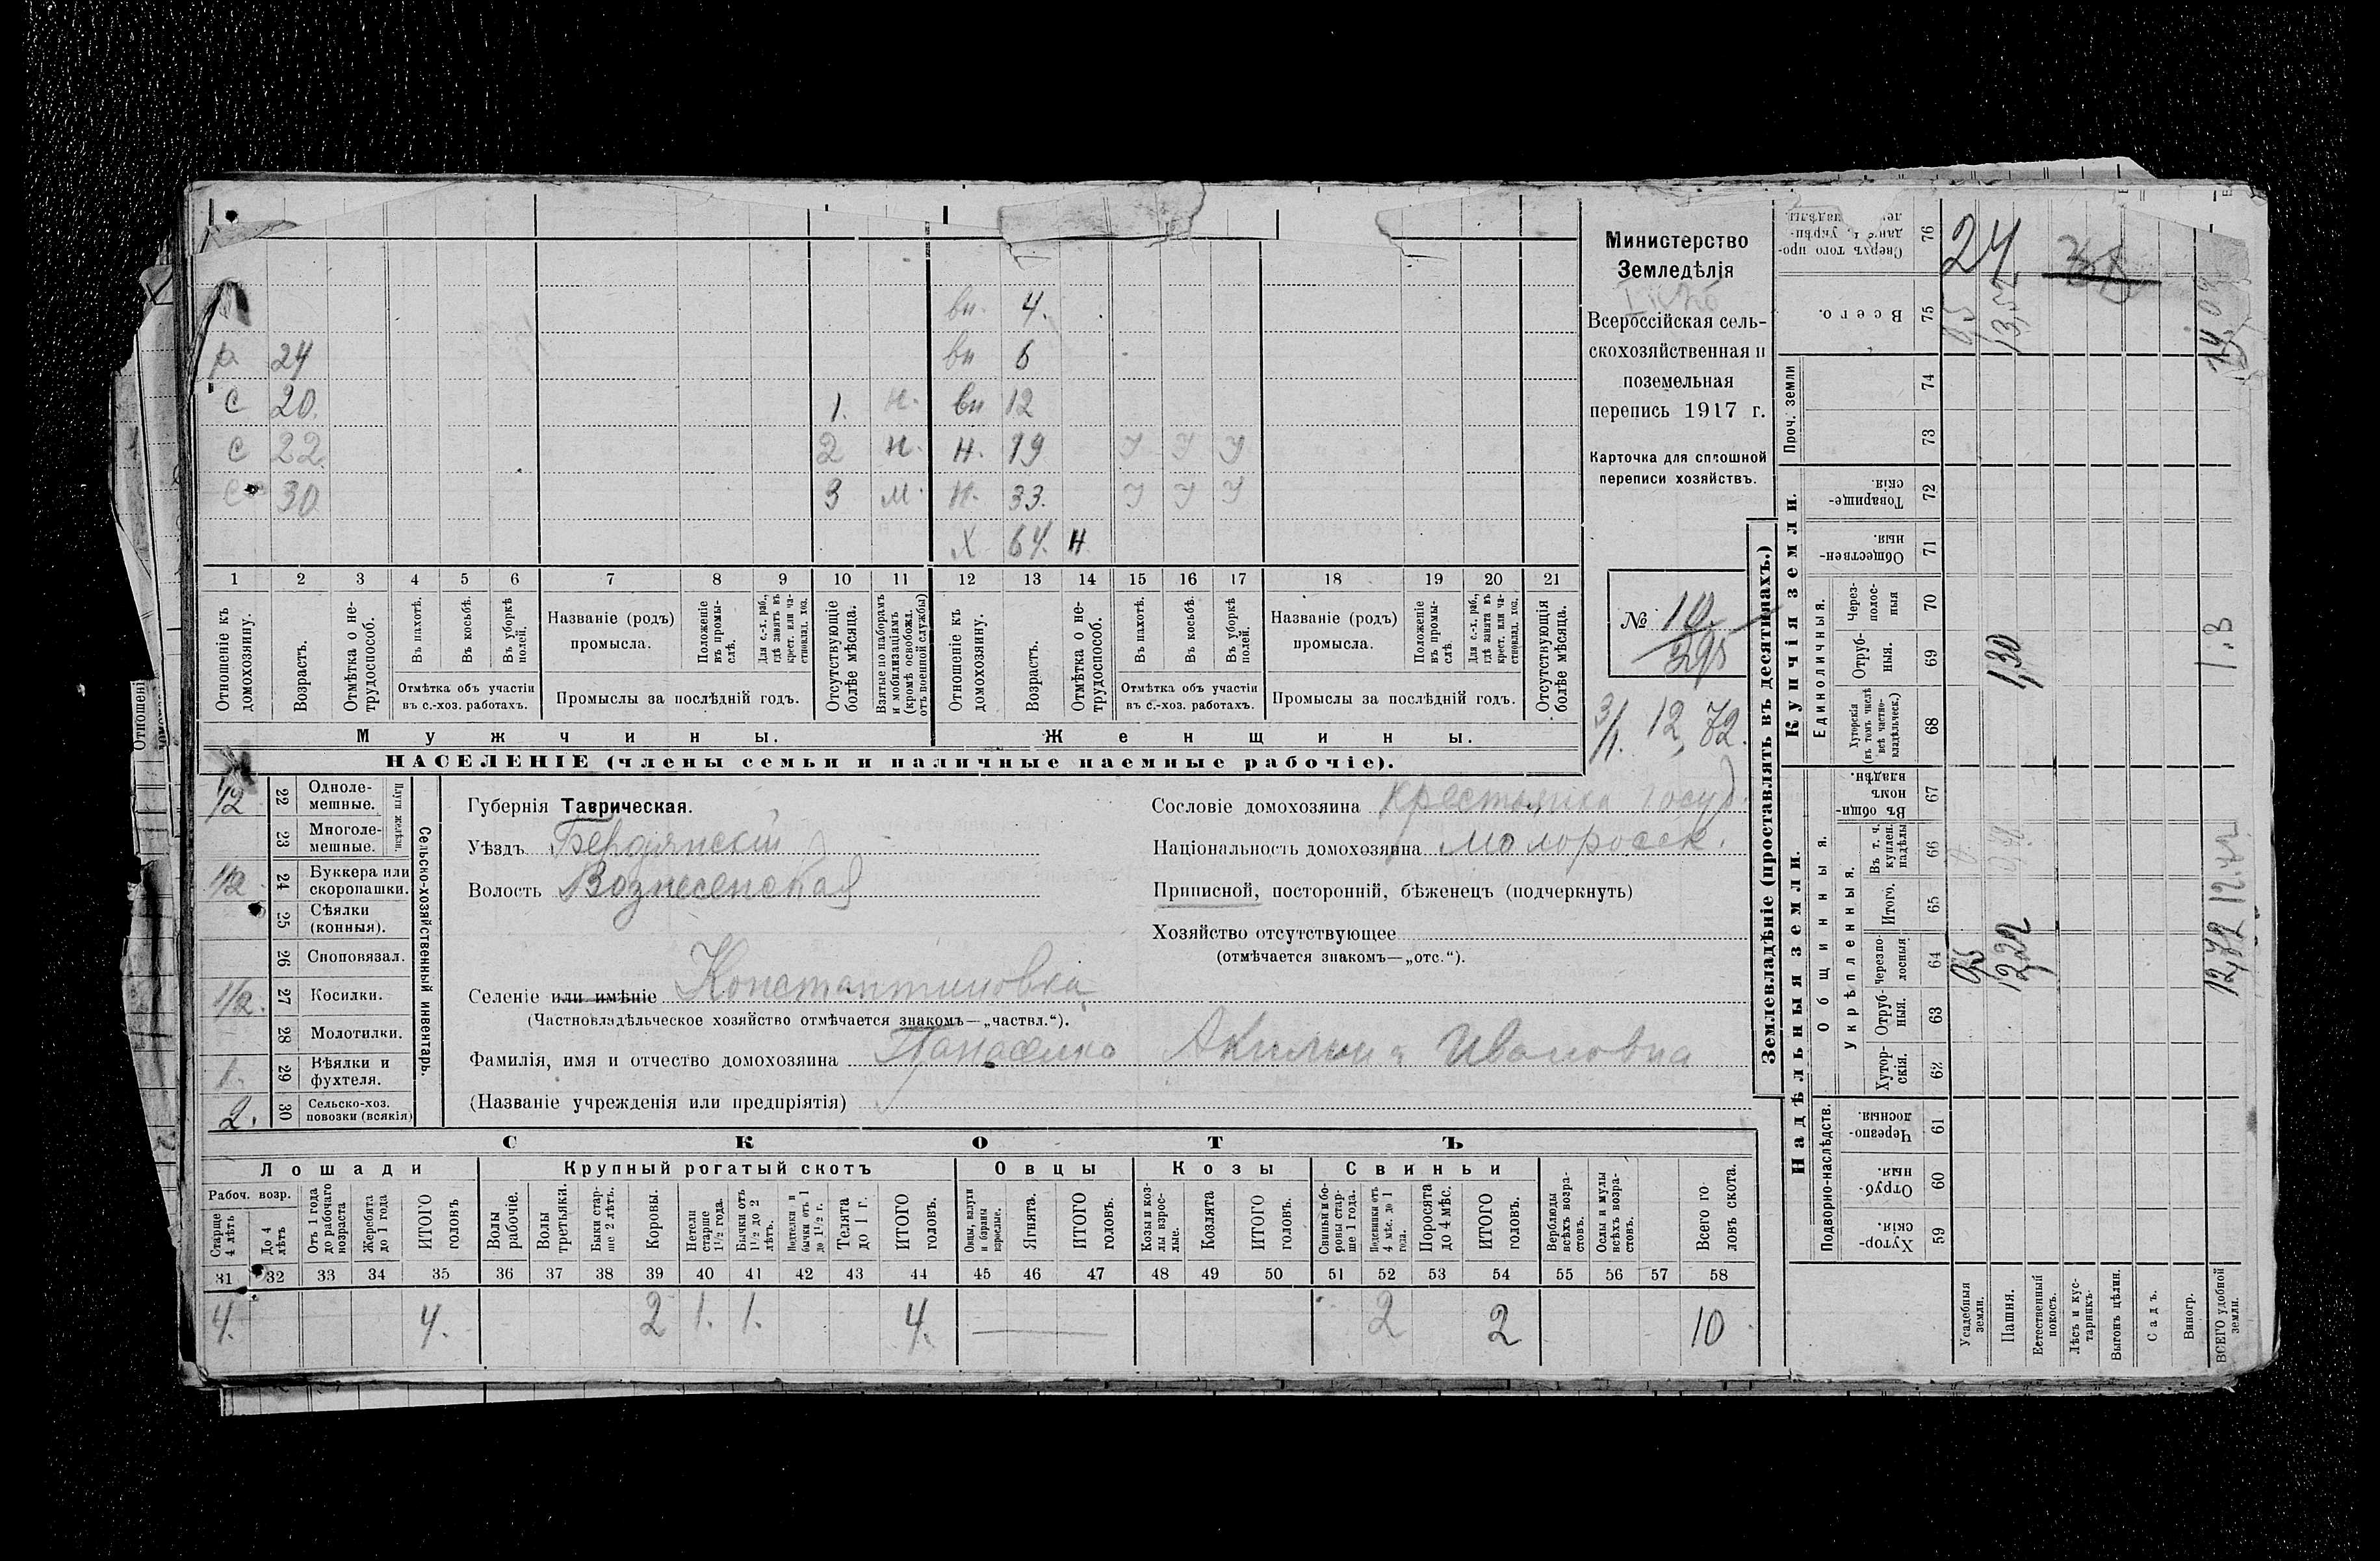 вн. 4.
р 24 вн 6
с 20. 1. н. вн 12
с 22. 2 н. н. 19 У У У
с 30 3 м. н. 33. У У У
Х 64. н
1 2 3 4 5 6 7 8 9 10 11 12 13 14 15 16 17 18 19 20 21
Отношеніе къ домохозяину.
Возрастъ.
Отмѣтка о не-трудоспособ.
Въ пахотѣ.
Въ косьбѣ.
Въ уборкѣ полей.
Отмѣтка объ участіи въ с.-хоз. работахъ.
Названіе (родъ) промысла.
Положеніе въ промы-слѣ.
Для с.-х. раб., гдѣ занятъ въ крест. или ча-стновлад. хоз.
Промыслы за послѣдній годъ.
Отсутствующіе болѣе мѣсяца.
Взятые по наборамъ и мобилизаціямъ (кромѣ освобожд. отъ военной службы)
Отношеніе къ домохозяину.
Возрастъ.
Отмѣтка о не-трудоспособ.
Въ пахотѣ.
Въ косьбѣ.
Въ уборкѣ полей.
Отмѣтка объ участіи въ с.-хоз. работахъ.
Названіе (родъ) промысла.
Положеніе въ промы-слѣ
Для с.-х. раб., гдѣ занята въ крест. или ча-стновлад. хоз.
Промыслы за послѣдній годъ.
Отсутствующія болѣе мѣсяца.
Мужчины.
Женщины.
НАСЕЛЕНІЕ (члены семьи и наличные наемные рабочіе).
Министерство
Земледѣлія
Всероссійская сель-
скохозяйственная и
поземельная
перепись 1917 г.
Карточка для сплошной
переписи хозяйствъ.
№ 10.
295
3/1. 12,72.
Сельско-хозяйственный инвентарь.
Плуги желѣзн.
1/2 22 Одноле-мешные.
23 Многоле-мешные.
1/2 24 Буккера или скоропашки.
25 Сѣялки (конныя).
26 Сноповязал.
1/2. 27 Косилки.
28 Молотилки.
1. 29 Вѣялки и фухтеля.
2. 30 Сельско-хоз. повозки (всякія)
Губернія Таврическая.
Уѣздъ Бердянскій
Волость Вознесенская
Селеніе или имѣніе Константиновка
(Частновладѣльческое хозяйство отмѣчается знакомъ—„частвл.“).
Фамилія, имя и отчество домохозяина Панасенко Акилина Ивановна
(Названіе учрежденія или предпріятія)
Сословіе домохозяина крестьянка госуд.
Національность домохозяина малоросск.
Приписной, посторонній, бѣженецъ (подчеркнуть)
Хозяйство отсутствующее
(отмѣчается знакомъ—„отс.“).
СКОТЪ
Лошади
Крупный рогатый скотъ
Овцы
Козы
Свиньи
Рабоч. возр.
Старше 4 лѣтъ
До 4 лѣтъ
Отъ 1 года до рабочаго возраста
Жеребята до 1 года
ИТОГО головъ
Волы рабочіе.
Волы третьяки.
Быки стар-ше 2 лѣтъ.
Коровы.
Нетели старше 1½ года.
Бычки отъ 1½ до 2 лѣтъ.
Подтелки и бычки отъ 1 до 1½ г.
Телята до 1 г.
ИТОГО головъ.
Овцы, валухи и бараны взрослые.
Ягнята.
ИТОГО головъ.
Козы и коз-лы взрос-лые.
Козлята
ИТОГО головъ.
Свиньи и бо-ровы стар-ше 1 года.
Подсвинки отъ 4 мѣс. до 1 года.
Поросята до 4 мѣс.
ИТОГО головъ.
Верблюды всѣхъ возра-стовъ.
Ослы и мулы всѣхъ возра-стовъ.
Всего го-ловъ скота.
31 32 33 34 35 36 37 38 39 40 41 42 43 44 45 46 47 48 49 50 51 52 53 54 55 56 57 58
4. 4. 2 1. 1. 4. 2 2 10
Землевладѣніе (проставлять въ десятинахъ.)
Надѣльныя земли.
Купчія земли.
Проч. земли
Подворно-наслѣдств.
Общинныя.
Укрѣпленныя.
Единоличныя.
Хутор-скія. 59
Отруб-ныя. 60
Черезпо-лосныя. 61
Хутор-скія. 62
Отруб-ныя. 63
Черезпо-лосныя 64
Итого. 65
Въ т. ч. куплен. надѣлы 66
Въ общин-номъ владѣн. 67
Хуторскія (въ томъ числѣ всѣ частно-владѣльческ.) 68
Отруб-ныя. 69
Через-полос-ныя 70
Обществен-ныя. 71
Товарище-скія. 72
73
74
Всего. 75
Сверхъ того про- 76
Усадебныя земли.
0,5
0,5
24
Пашня.
12,22
1,30
13,52
Естественный покосъ.
Лѣсъ и кус-тарникъ.
Выгонъ цѣлин.
Садъ.
Виногр.
ВСЕГО удобной земли.
12,72
12,72
1.3
14,02